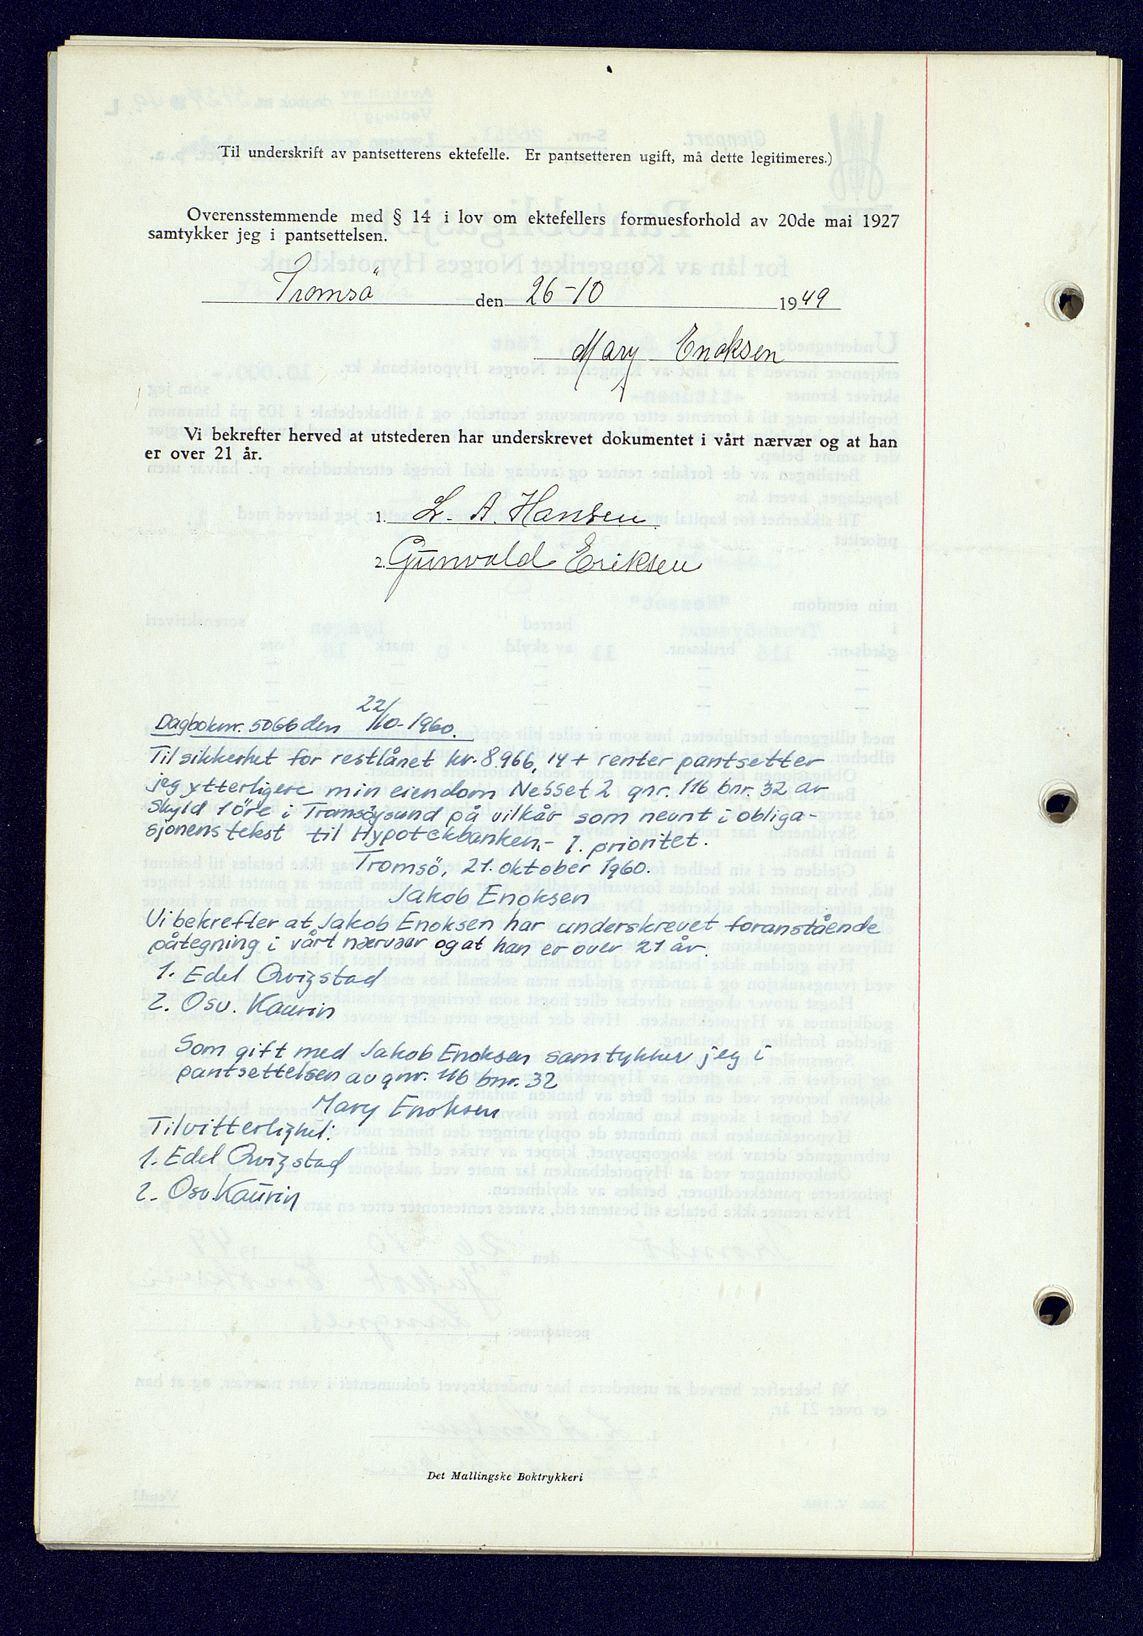 (Til underskrift av pantsetterens ektefelle. Er pantsetteren ugift, må dette legitimeres.)
Overensstemmende med § 14 i lov om ektefellers formuesforhold av 20de mai 1927
samtykker jeg i pantsettelsen.
Tromsö den 26-10 1949
Mary Enoksen
Vi bekrefter herved at utstederen har underskrevet dokumentet i vårt nærvær og at han
er over 21 år.
1. L. A. Hansen
2. Gunvald Eriksen
Dagboknr. 5066 den 22/10-1960.
Til sikkerhet for restlånet kr. 8.966,14 + renter pantsetter
jeg ytterligere min eiendom Nesset 2 gnr. 116 bnr. 32 av
skyld 1 öre i Tromsöysund på vilkår som nevnt i obliga-
sjonens tekst til Hypotekbanken,- 1. prioritet.
Tromsö, 21. oktober 1960.
Jakob Enoksen
Vi bekrefter at Jakob Enoksen har underskrevet foranstående
påtegning i vårt nærvær og at han er over 21 år.
1. Edel Qvigstad
2. Osv. Kaurin
Som gift med Jakob Enoksen samtykker jeg i
pantsettelsen av gnr. 116 bnr. 32
Mary Enoksen
Til vitterlighet:
1. Edel Qvigstad
2. Osv. Kaurin
Det Mallingske Boktrykkeri